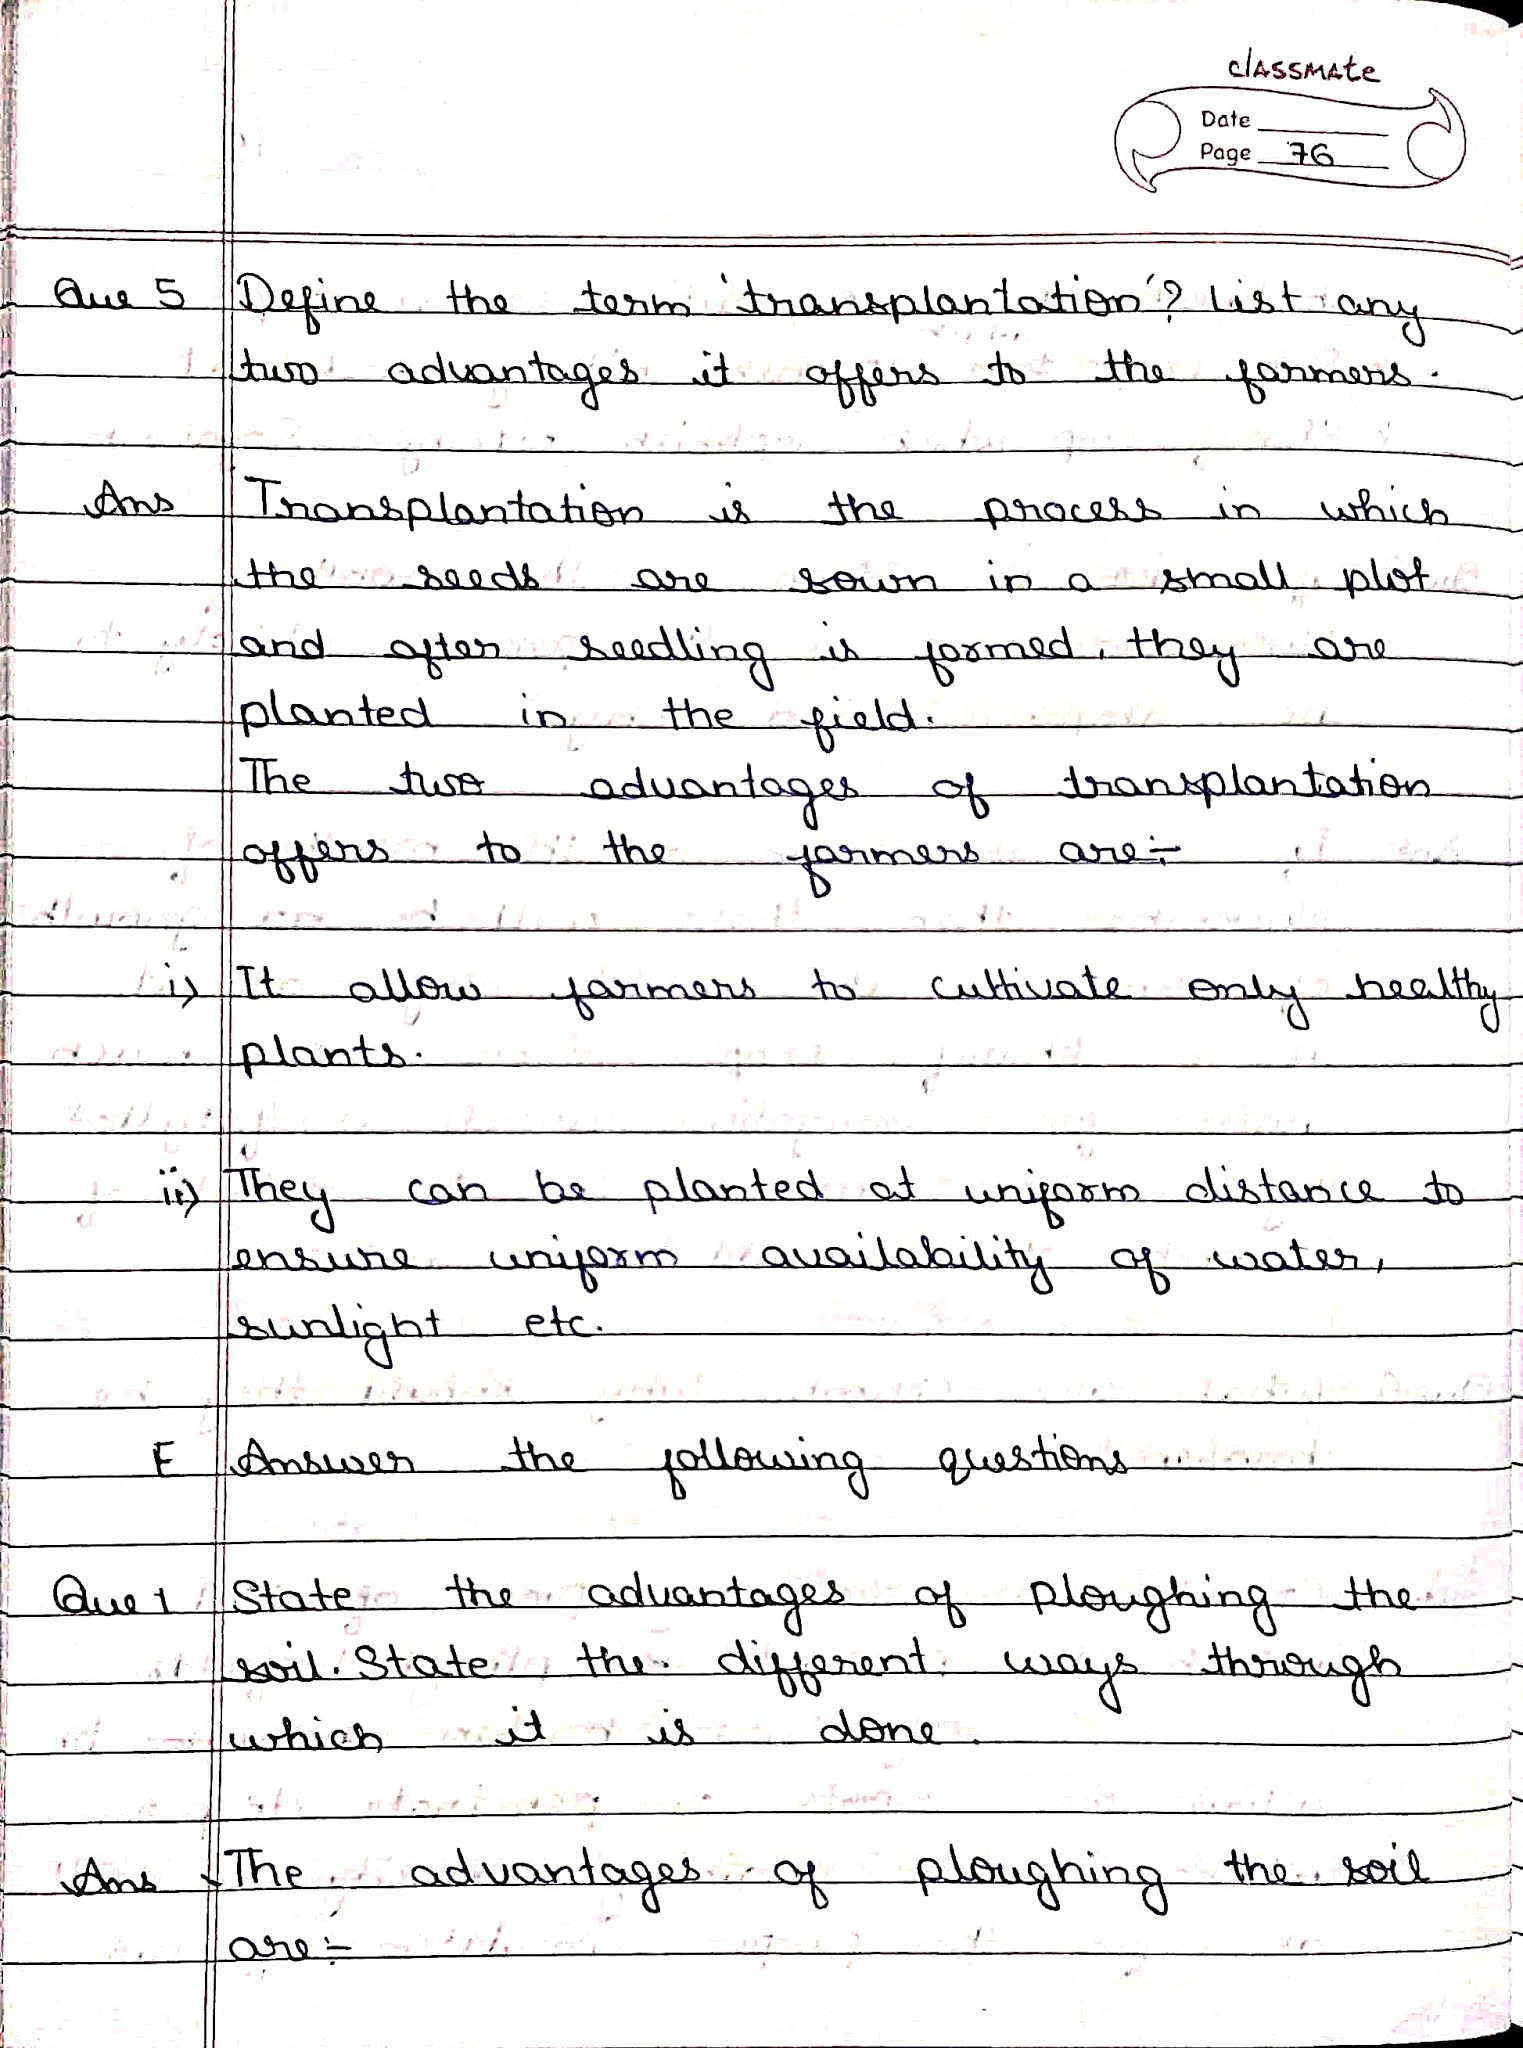 classmate
Date
Page 76
Que 5 Define the term 'transplantation'? List any
two advantages it offers to the farmers.
Ans Transplantation is the process in which
the seeds are sown in a small plot
and after seedling is formed, they are
planted in the field.
The two advantages of transplantation
offers to the farmers are:-
i) It allow farmers to cultivate only healthy
plants.
ii) They can be planted at uniform distance to
ensure uniform availability of water,
sunlight etc.
E Answer the following questions
Que 1 State the advantages of ploughing the
soil. State the different ways through
which it is done.
Ans The advantages of ploughing the soil
are:-